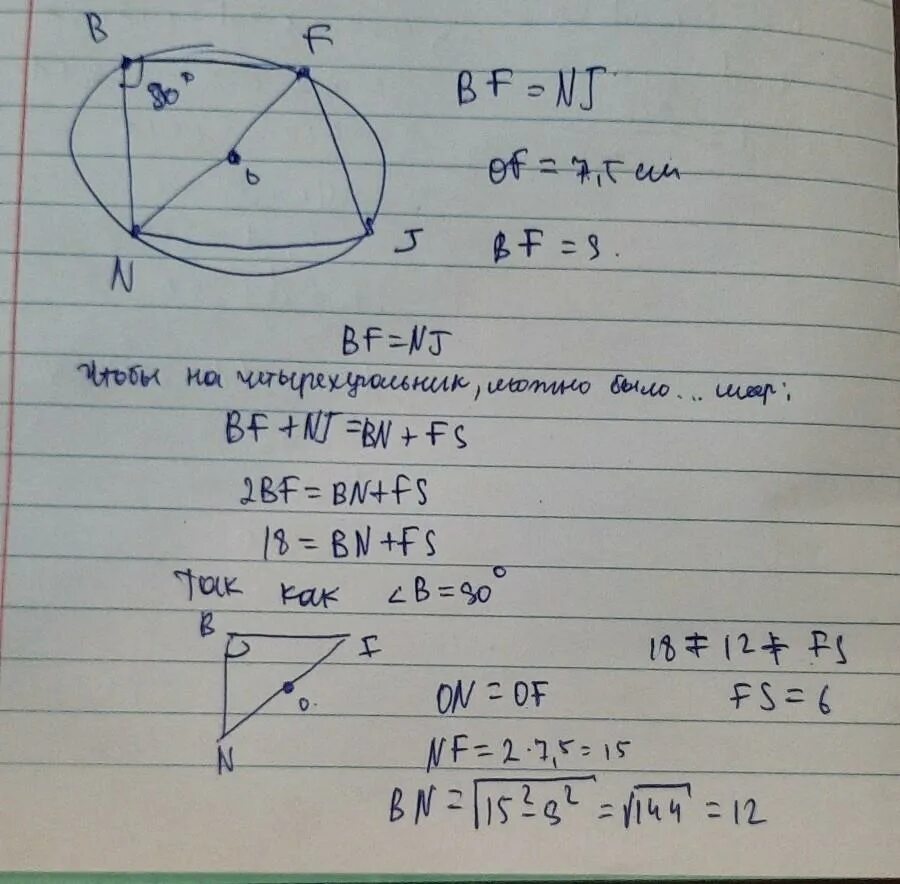 B F
90°
O
N J
BF = NJ
OF = 7,5 см
BF = 9.
BF = NJ
Чтобы на четырехугольник, можно было ... шар:
BF + NJ = BN + FS
2BF = BN + FS
18 = BN + FS
Так как ∠B = 90°
B F
O.
N
ON = OF
NF = 2 · 7,5 = 15
BN = √15² - 9² = √144 = 12
18 = 12 + FS
FS = 6